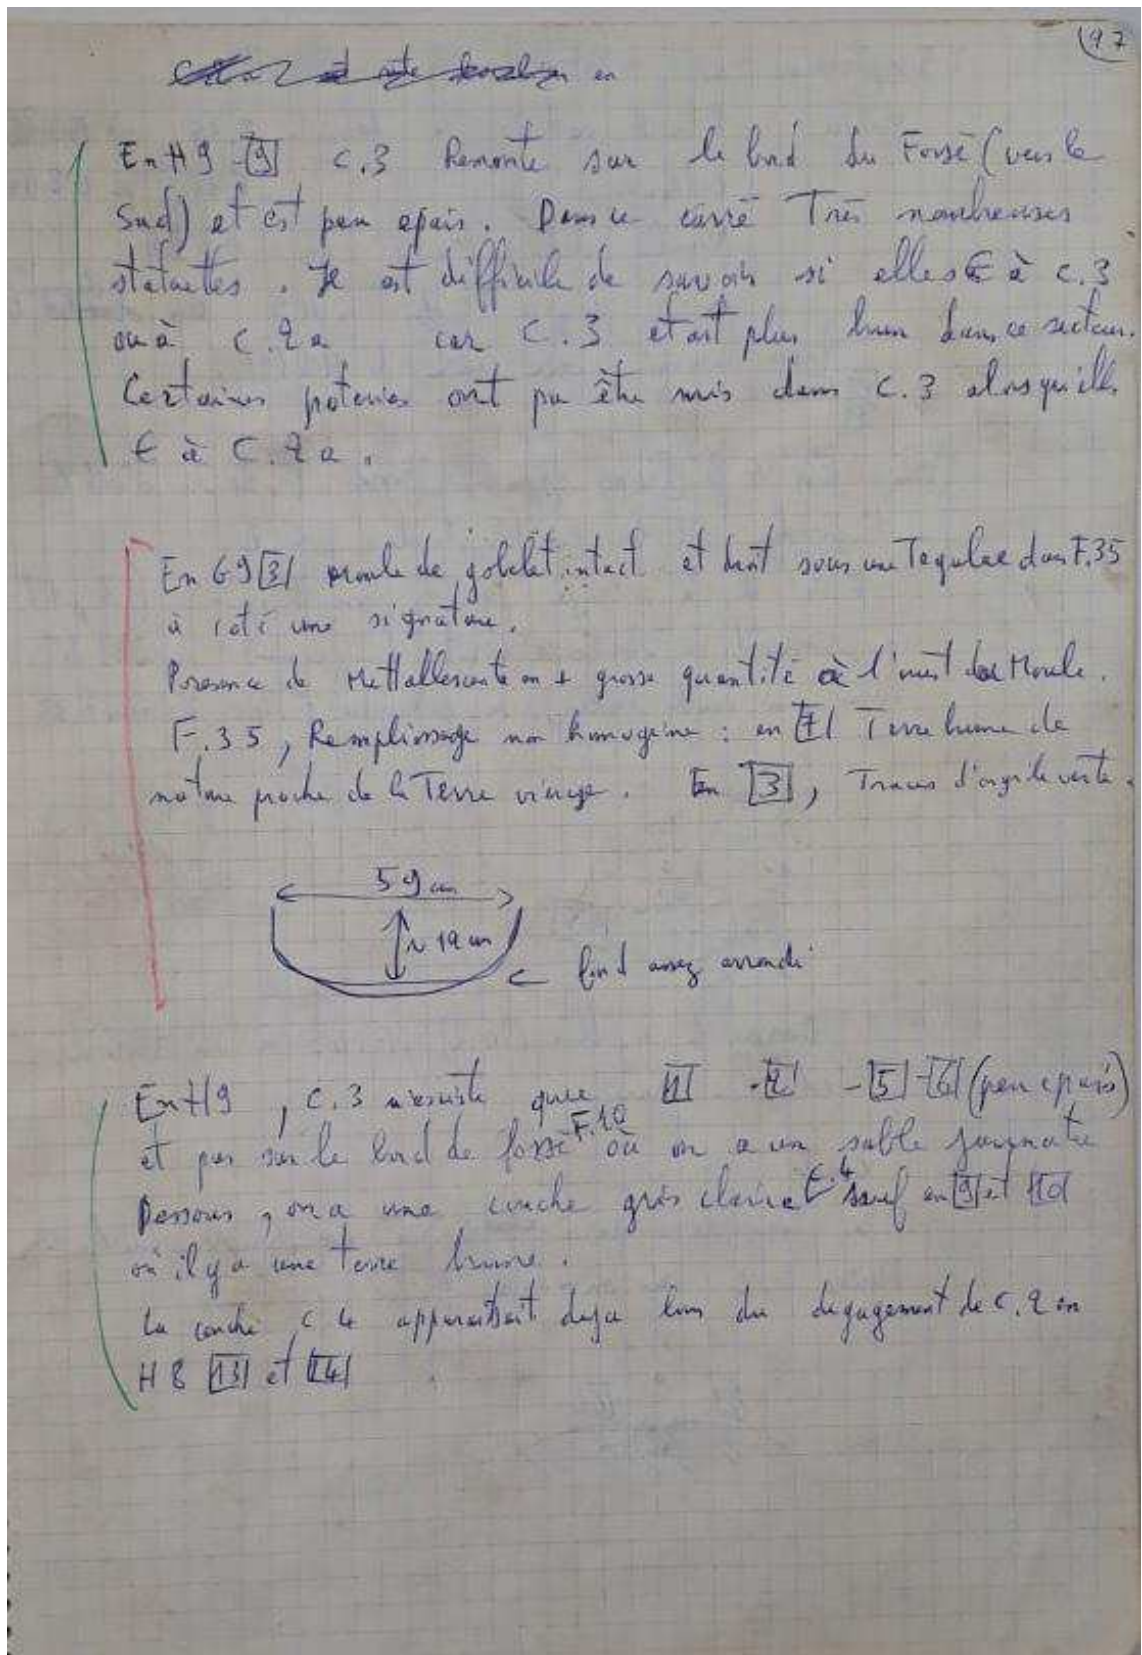 97
en
En H9 [9] C.3 Remonte sur le bord du Fossé (vers le
Sud) et est peu epais. Dans ce carré Très nombreuses
statuettes. Il est difficile de savoir si elles € à C.3
ou à C.2a car C.3 etait plus brun dans ce secteur.
Certaines poteries ont pu être mis dans C.3 alors qu'elles
€ à C.2a.
En G9 [3] moule de gobelet intact et droit sous une Tegulae dans F.35
à coté une signature.
Presence de Mettallescente en + grosse quantité à l'ouest du Moule.
F.35, Remplissage non homogène : en [7] Terre brune de
nature proche de la Terre vierge. En [3], Traces d'argile verte.
59 cm
~ 19 cm
fond assez arrondi
En H9, C.3 n'existe que [1] - [2] - [5] - [6] (peu epais)
et pas sur le bord de fossé F.10 où on a un sable jaunatre
Dessous, on a une couche gris claire C.4 sauf en [9] et [10]
où il y a une terre brune.
La couche C 4 apparaissait deja lors du degagement de C.2 en
H8 [13] et [14]